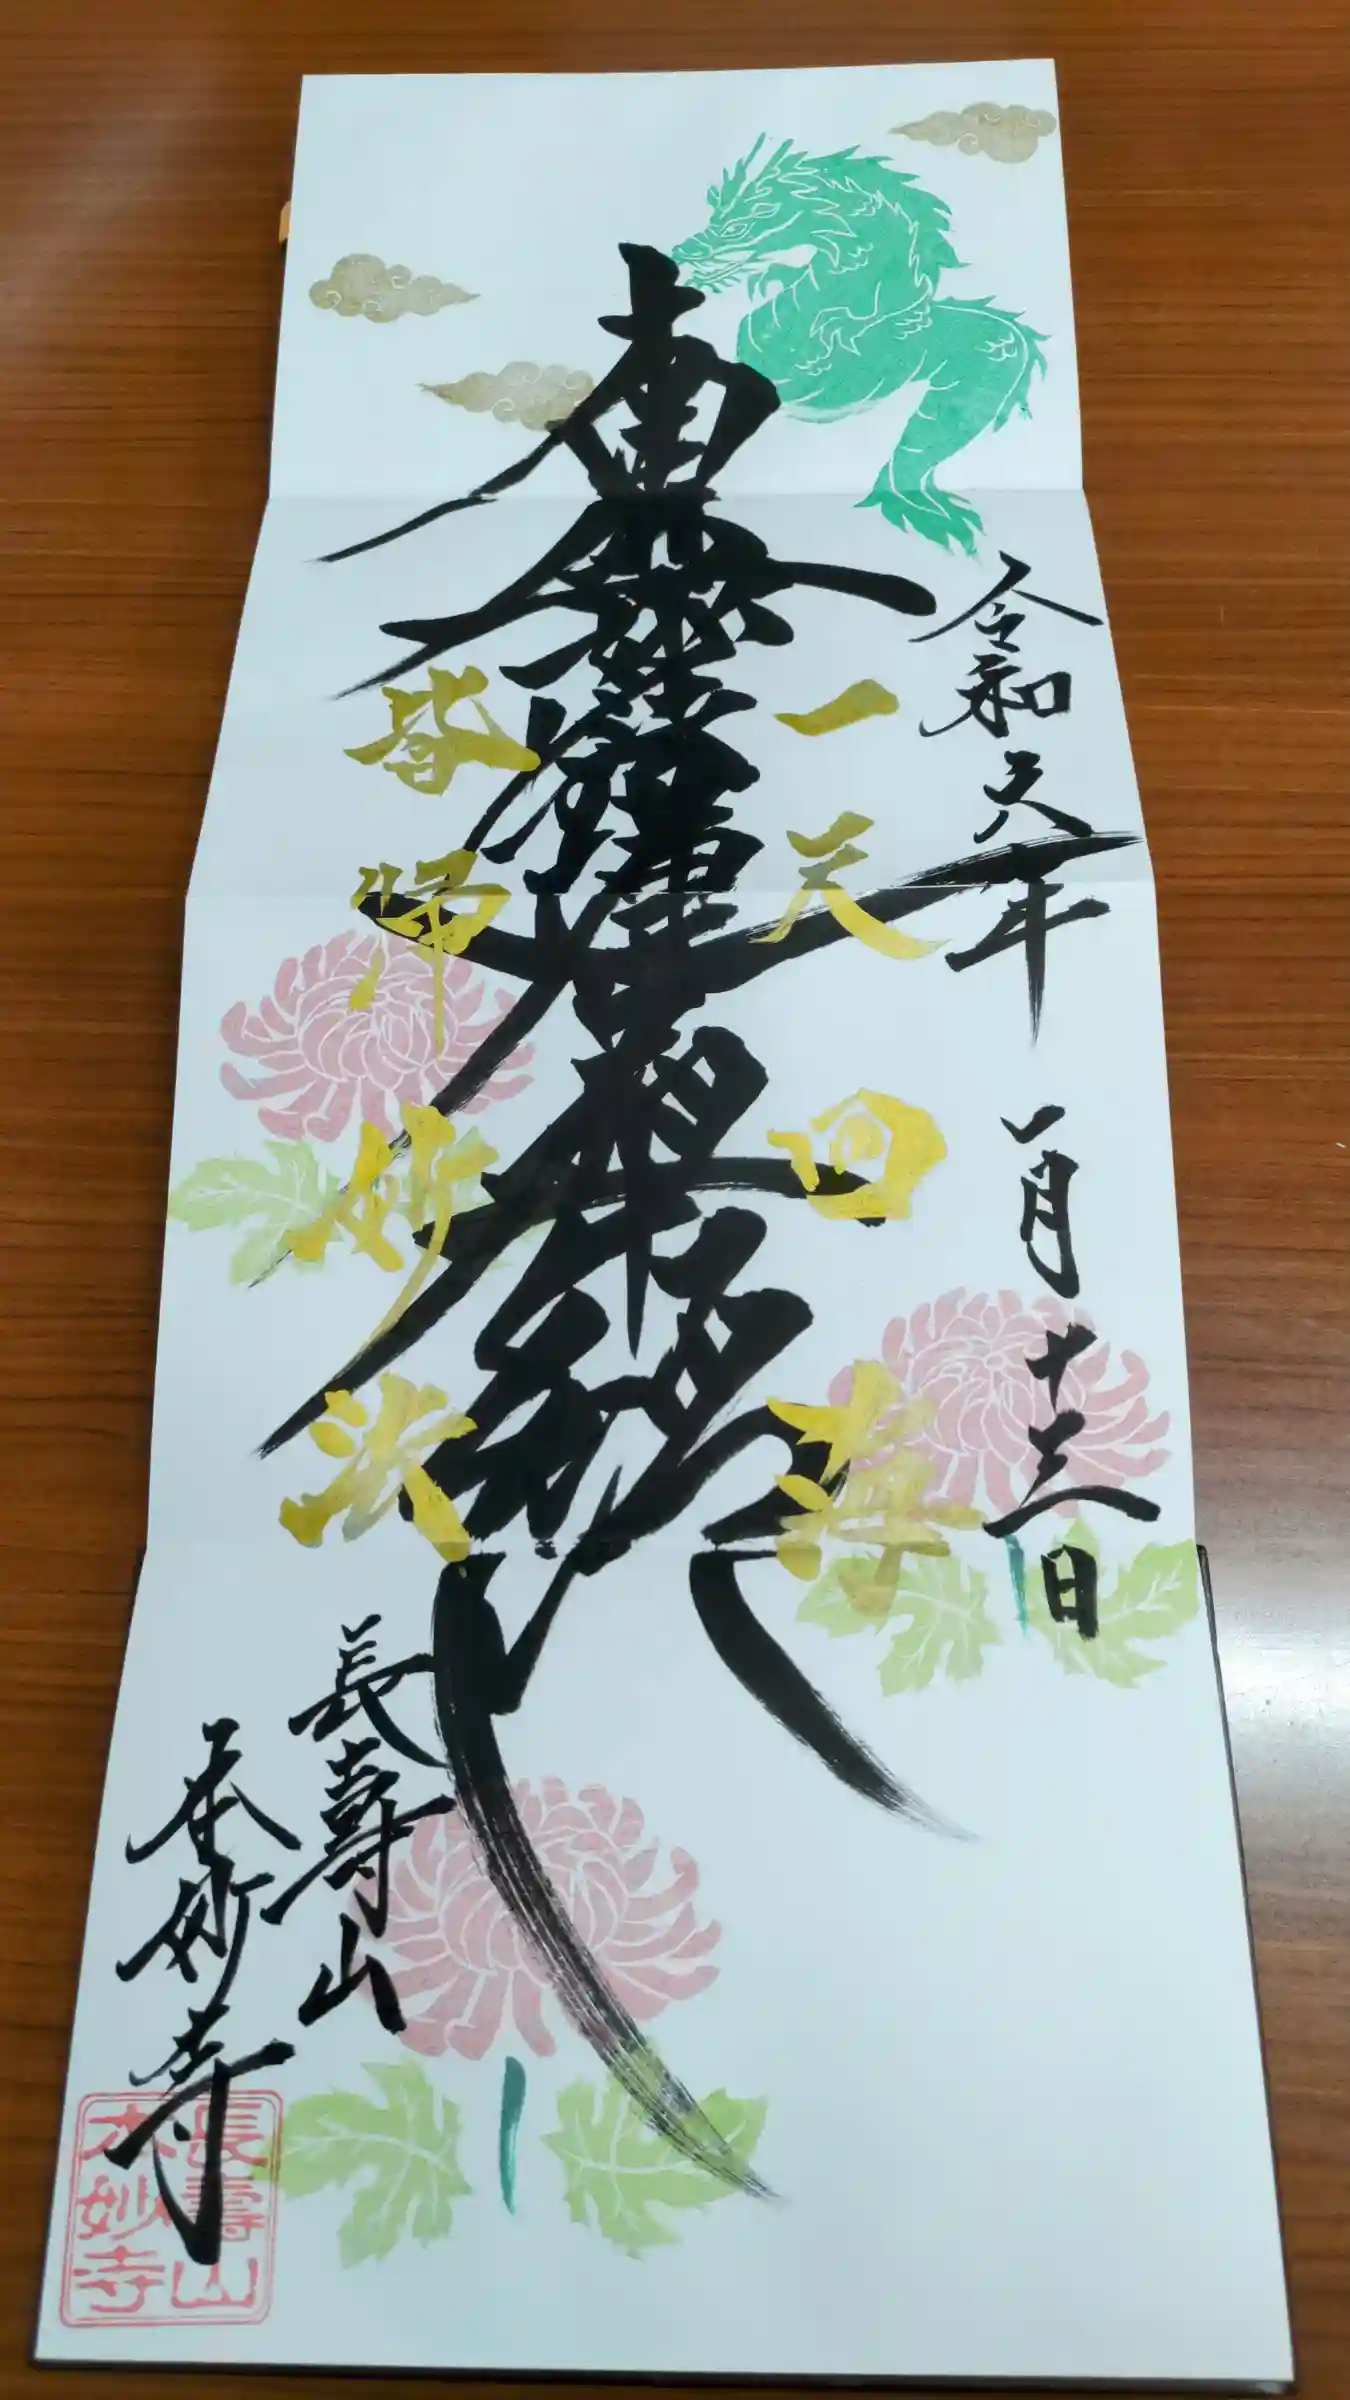 令和六年 一月十三日
一天四海
南無妙法蓮華經
皆帰妙法
長壽山
本妙寺
長壽山
本妙寺